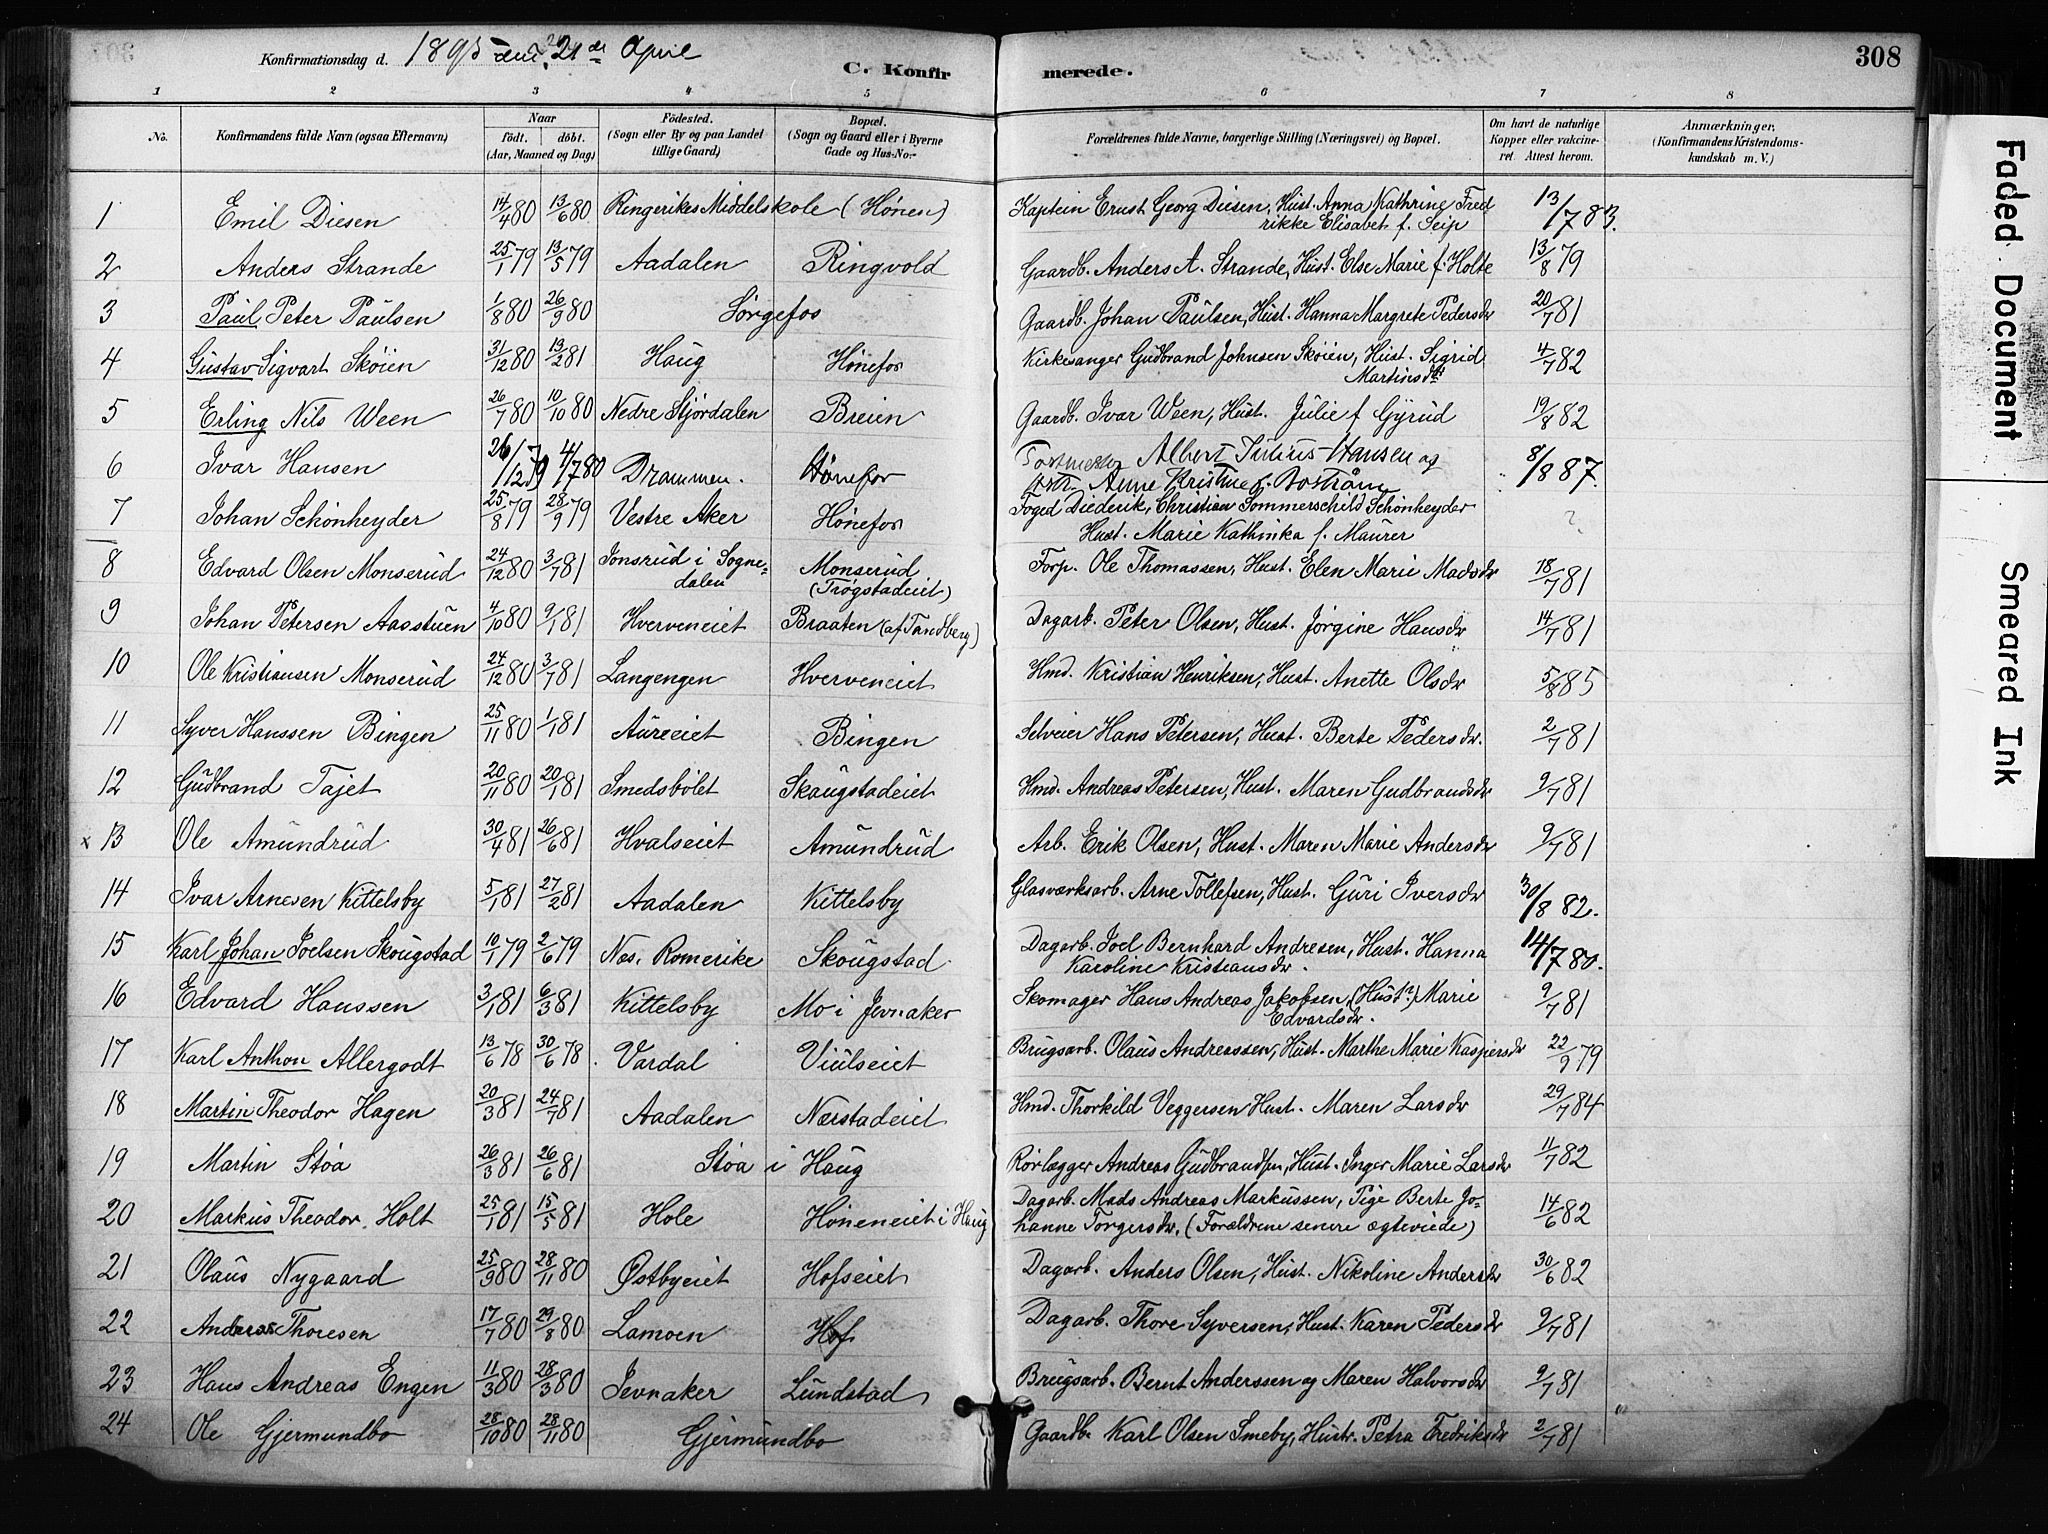 308
Konfirmationsdag d. 1895 den 21de April
C. Konfirmerede.
1 2 3 4 5 6 7 8
No. Konfirmandens fulde Navn (ogsaa Efternavn) Naar født. døbt. (Aar, Maaned og Dag) Fødested. (Sogn eller By og paa Landet tillige Gaard) Bopæl. (Sogn og Gaard eller i Byerne Gade og Hus-No. Forældrenes fulde Navne, borgerlige Stilling (Næringsvei) og Bopæl. Om havt de naturlige Kopper eller vakcineret Attest herom. Anmærkninger. (Konfirmandens Kristendomskundskab m. V.)
1 Emil Diesen 14/4 80 13/6 80 Ringerikes Middelskole (Hønen) Kaptein Ernst Georg Diesen, Hust. Anna Kathrine Fred- 13/7 83.
rikke Elisabet f. Seip
2 Anders Strande 25/1 79 13/5 79 Aadalen Ringvold Gaardb. Anders A. Strande, Hust. Else Marie f. Holte 13/8 79
3 Paul Peter Paulsen 1/8 80 26/9 80 Sørgefos Gaardb. Johan Paulsen, Hust. Hanna Margrete Pedersdr 20/7 81
4 Gustav Sigvart Skøien 31/12 80 13/2 81 Haug Hønefos Kirkesanger Gudbrand Johnsen Skøien, Hust. Sigrid 4/7 82
Martinsdtr
5 Erling Nils Ween 26/7 80 10/10 80 Nedre Stjørdalen Breien Gaardb. Ivar Ween, Hust. Julie f. Gyrud 19/8 82
6 Ivar Hansen 26/12 79 4/7 80 Drammen. Hønefos Albert Julius Hansen og 8/8 87.
Anne Kristine f. Bostrøm
7 Johan Schønheyder 25/8 79 28/9 79 Vestre Aker Hønefos Foged Diederik, Christian Sommerschild Schønheyder ?
Hust. Marie Kathinka f. Maurer
8 Edvard Olsen Monserud 24/12 80 3/7 81 Jonsrud i Sogne- Monserud Torp. Ole Thomassen, Hust. Elen Marie Madsdr 18/7 81
dalen (Trøgstadeiet)
9 Johan Petersen Aasstuen 4/10 80 9/1 81 Hverveneiet Braaten (af Tandberg) Dagarb. Peter Olsen, Hust. Jørgine Hansdr 14/7 81
10 Ole Kristiansen Monserud 24/12 80 3/7 81 Langengen Hverveneiet Hmd. Kristian Henriksen, Hust. Anette Olsdr 5/8 85
11 Syver Hanssen Bingen 25/11 80 1/1 81 Aureeiet Bingen Selveier Hans Petersen, Hust. Berte Pedersdr. 2/7 81
12 Gudbrand Tajet 20/11 80 20/1 81 Smedsbølet Skougstadeiet Hmd. Andreas Petersen, Hust. Maren Gudbrandsdr 9/7 81
x 13 Ole Amundrud 30/4 81 26/6 81 Hvalseiet Amundrud Arb. Erik Olsen, Hust. Maren Marie Andersdr 9/7 81
14 Ivar Arnesen Kittelsby 5/1 81 27/2 81 Aadalen Kittelsby Glasværksarb. Arne Tollefsen, Hust. Guri Iversdr 30/8 82.
15 Karl Johan Joelsen Skougstad 10/1 79 2/6 79 Nes, Romerike Skougstad Dagarb. Joel Bernhard Andresen, Hust. Hanna 14/7 80.
Karoline Kristiansdr.
16 Edvard Hanssen 3/1 81 6/3 81 Kittelsby Mo i Jevnaker Skomager Hans Andreas Jakobsen, (Hust?) Marie 9/7 81
Edvardsdr.
17 Karl Anthon Allergodt 13/6 78 30/6 78 Vardal Viulseiet Brugsarb. Olaus Andreassen, Hust. Marthe Marie Kaspersdr 22/9 79
18 Martin Theodor Hagen 20/3 81 24/7 81 Aadalen Nærstadeiet Hmd. Thorkild Veggersen Hust. Maren Larsdr 29/7 84
19 Martin Støa 26/3 81 26/6 81 Støa i Haug Rørlægger Andreas Gudbrandsen, Hust. Inger Marie Larsdr 11/7 82
20 Markus Theodor Holt 25/1 81 15/5 81 Hole Høneneiet i Haug Dagarb. Mads Andreas Markussen, Pige Berte Jo- 14/6 82
hanne Torgersdr. (Forældrene senere ægteviede)
21 Olaus Nygaard 25/9 80 28/11 80 Østbyeiet Hofseiet Dagarb. Anders Olsen, Hust. Nikoline Andersdr 30/6 82
22 Anders Thoresen 17/7 80 29/8 80 Lamoen Hof Dagarb. Thore Syversen, Hust. Karen Pedersdr 9/7 81
23 Hans Andreas Engen 11/3 80 28/3 80 Jevnaker Lundstad Brugsarb. Bernt Anderssen og Maren Halvorsdr 9/7 81
24 Ole Gjermundbo 28/10 80 28/11 80 Gjermundbo Gaardb. Karl Olsen Smeby, Hustr. Petra Fredriksdr 2/7 81
Faded Document
Smeared Ink